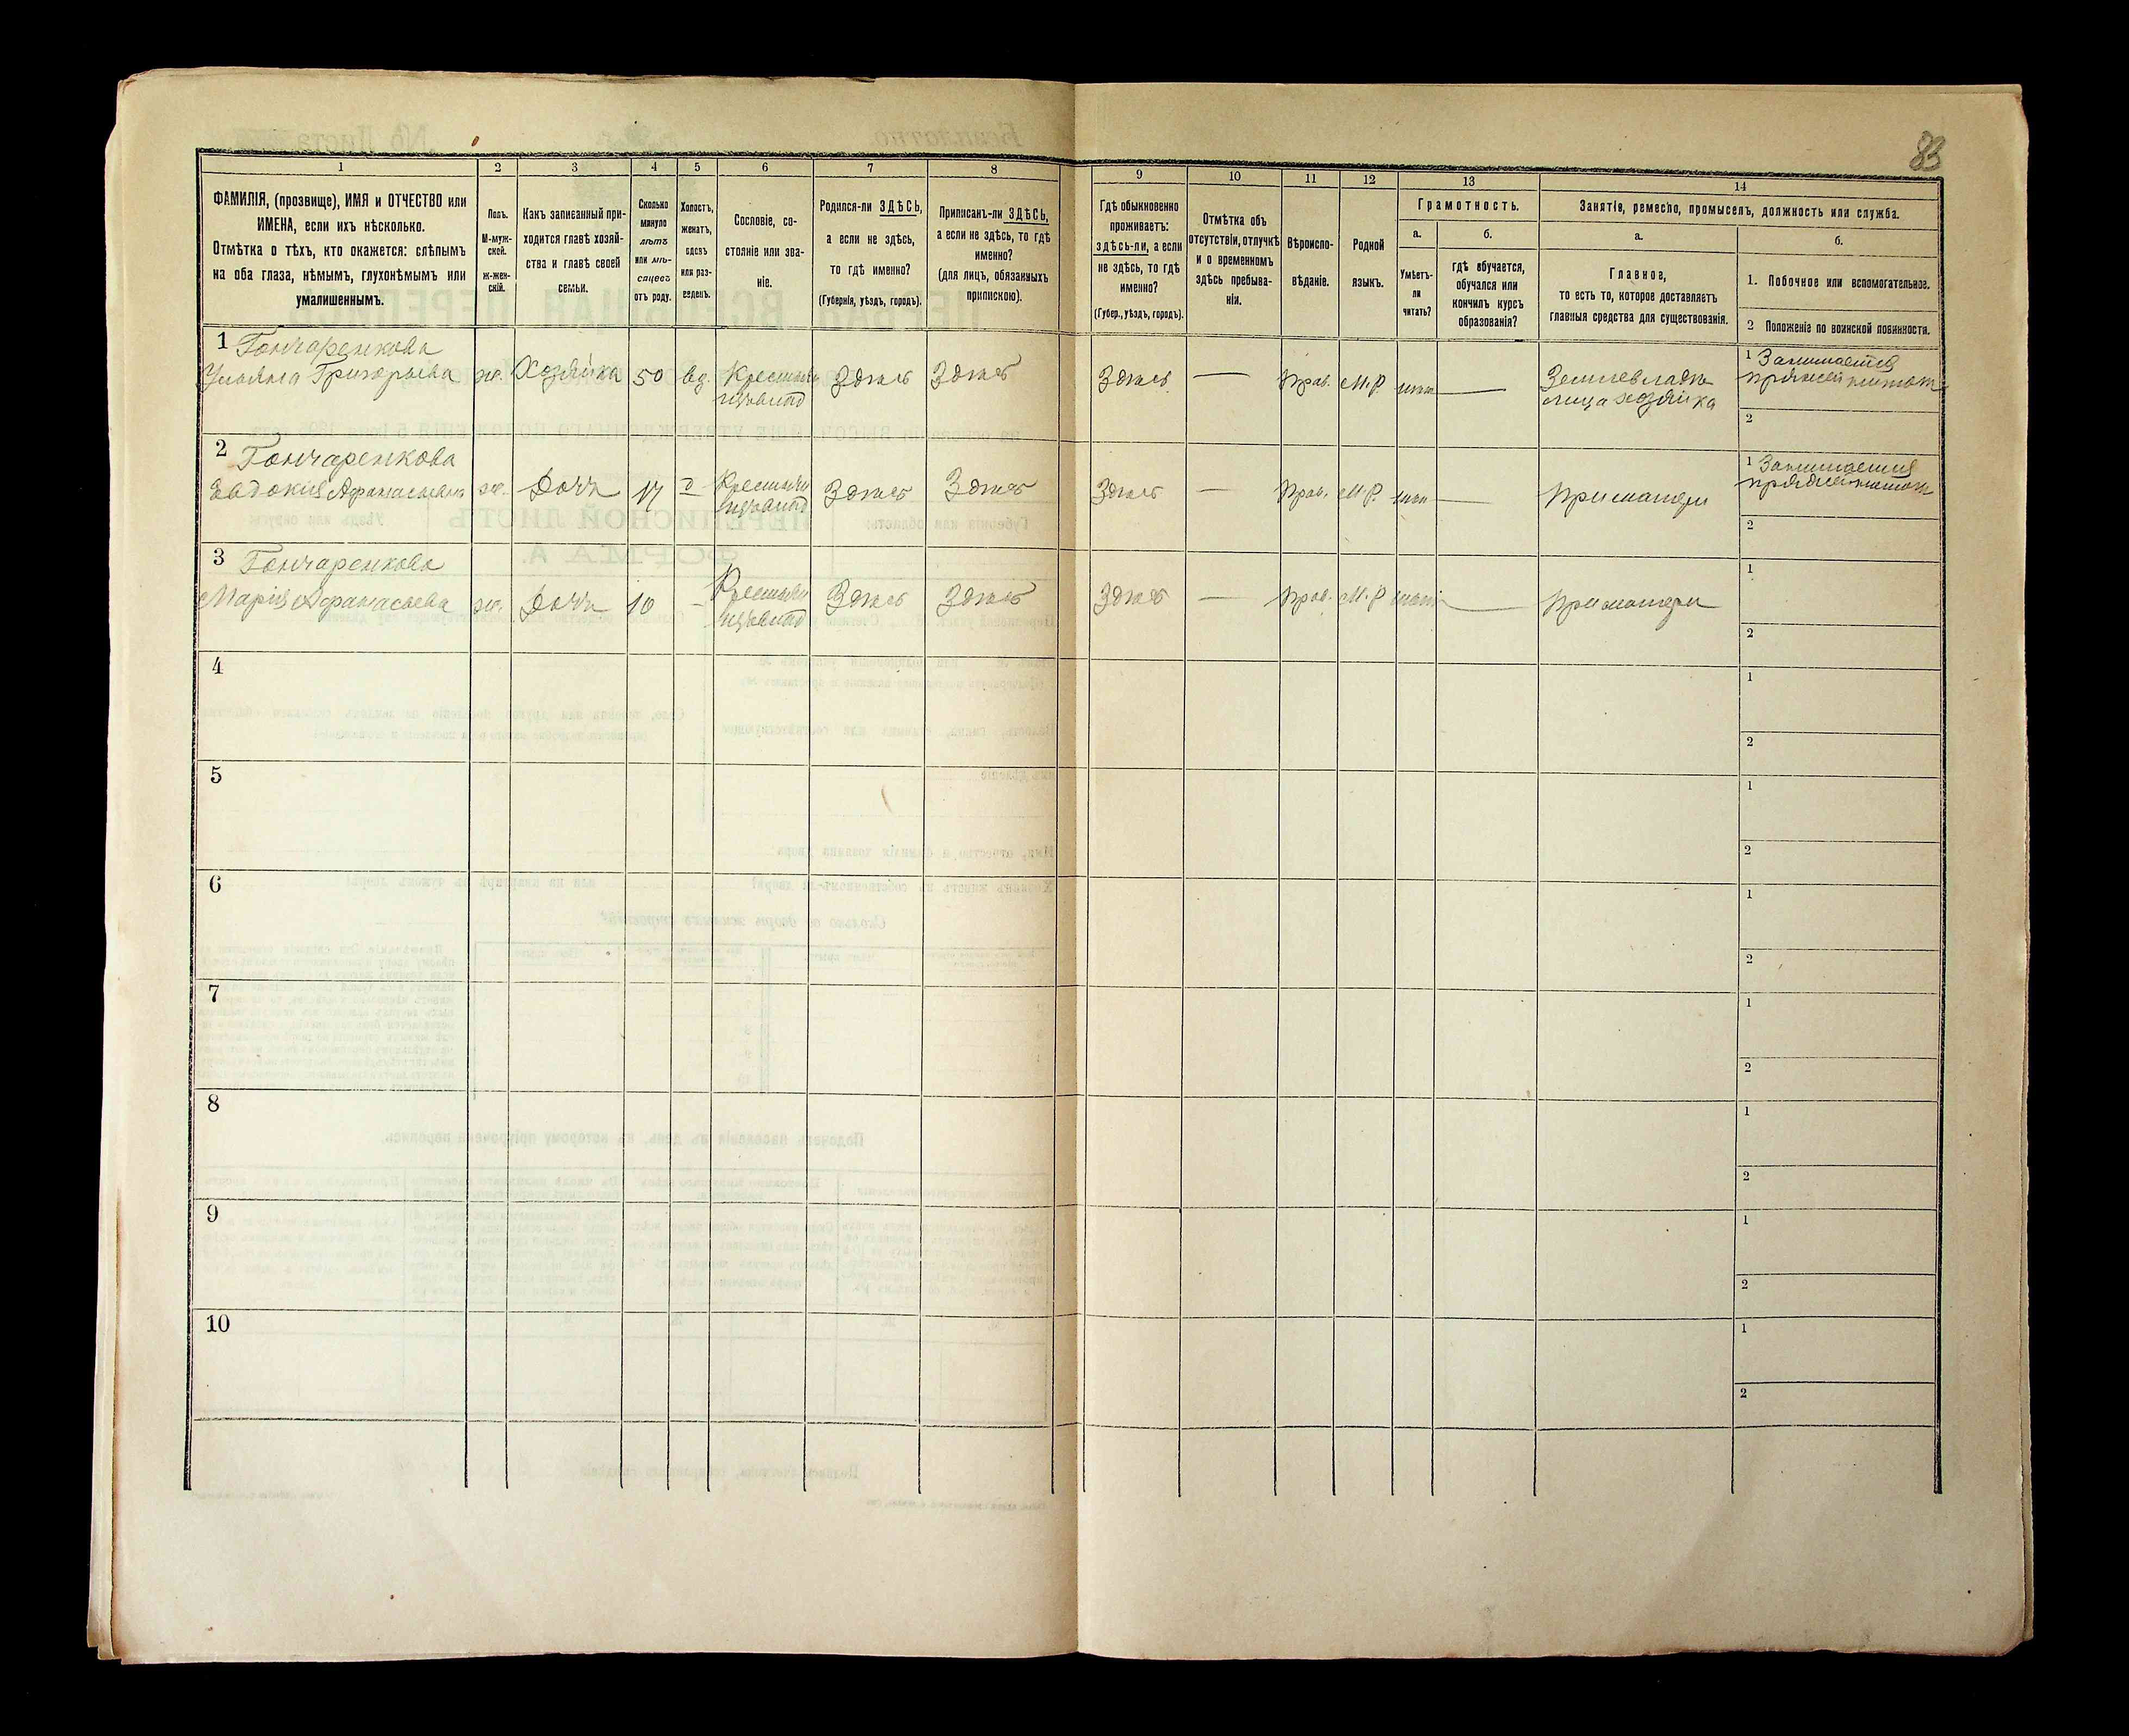 83
1 2 3 4 5 6 7 8 9 10 11 12 13 14
ФАМИЛІЯ, (прозвище), ИМЯ и ОТЧЕСТВО или
ИМЕНА, если ихъ нѣсколько.
Отмѣтка о тѣхъ, кто окажется: слѣпымъ
на оба глаза, нѣмымъ, глухонѣмымъ или
умалишеннымъ.
Полъ.
М-муж-
ской.
ж-жен-
скій.
Какъ записанный при-
ходится главѣ хозяй-
ства и главѣ своей
семьи.
Сколько
минуло
лѣтъ
или мѣ-
сяцевъ
отъ роду.
Холостъ,
женатъ,
вдовъ
или раз-
веденъ.
Сословіе, со-
стояніе или зва-
ніе.
Родился-ли ЗДѢСЬ,
а если не здѣсь,
то гдѣ именно?
(Губернія, уѣздъ, городъ).
Приписанъ-ли ЗДѢСЬ,
а если не здѣсь, то гдѣ
именно?
(для лицъ, обязанныхъ
припискою).
Гдѣ обыкновенно
проживаетъ:
здѣсь-ли, а если
не здѣсь, то гдѣ
именно?
(Губер., уѣздъ, городъ).
Отмѣтка объ
отсутствіи, отлучкѣ
и о временномъ
здѣсь пребыва-
ніи.
Вѣроиспо-
вѣданіе.
Родной
языкъ.
Грамотность.
а.
Умѣетъ-
ли
читать?
б.
гдѣ обучается,
обучался или
кончилъ курсъ
образованія?
Занятіе, ремесло, промыселъ, должность или служба.
а.
Главное,
то есть то, которое доставляетъ
главныя средства для существованія.
б.
1. Побочное или вспомогательное.
2 Положеніе по воинской повинности.
1 Гончаренкова
Ульяна Григорьева
ж.
Хозяйка
50
вд.
Крестьян
Здѣсь
Здѣсь
Здѣсь
—
прав.
М.Р.
нѣтъ
—
Землевладѣ
лица хозяйка
1 Занимается
пряжей нитокъ
2
2 Гончаренкова
Евдокия Афанасьева
ж.
дочь
17
Д
Крестьян
Здѣсь
Здѣсь
Здѣсь
—
прав.
М.Р.
нѣтъ
—
при матери
1 Занимается
пряжей нитокъ
2
3 Гончаренкова
Мария Афанасьева
ж.
дочь
10
—
Крестьян
Здѣсь
Здѣсь
Здѣсь
—
прав.
М.Р
нѣтъ
—
при матери
1
2
4
1
2
5
1
2
6
1
2
7
1
2
8
1
2
9
1
2
10
1
2